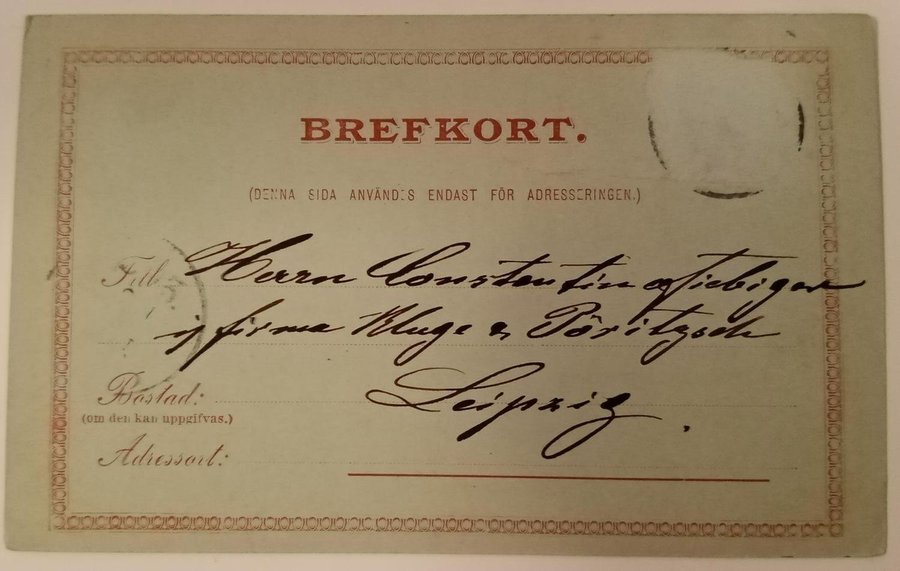 BREFKORT.
(DENNA SIDA ANVÄNDES ENDAST FÖR ADRESSERINGEN.)
Till Herrn Constantin Fiebiger
i/ firma Kluge & Pöritzsch
Bostad: Leipzig.
(om den kan uppgifvas.)
Adressort: